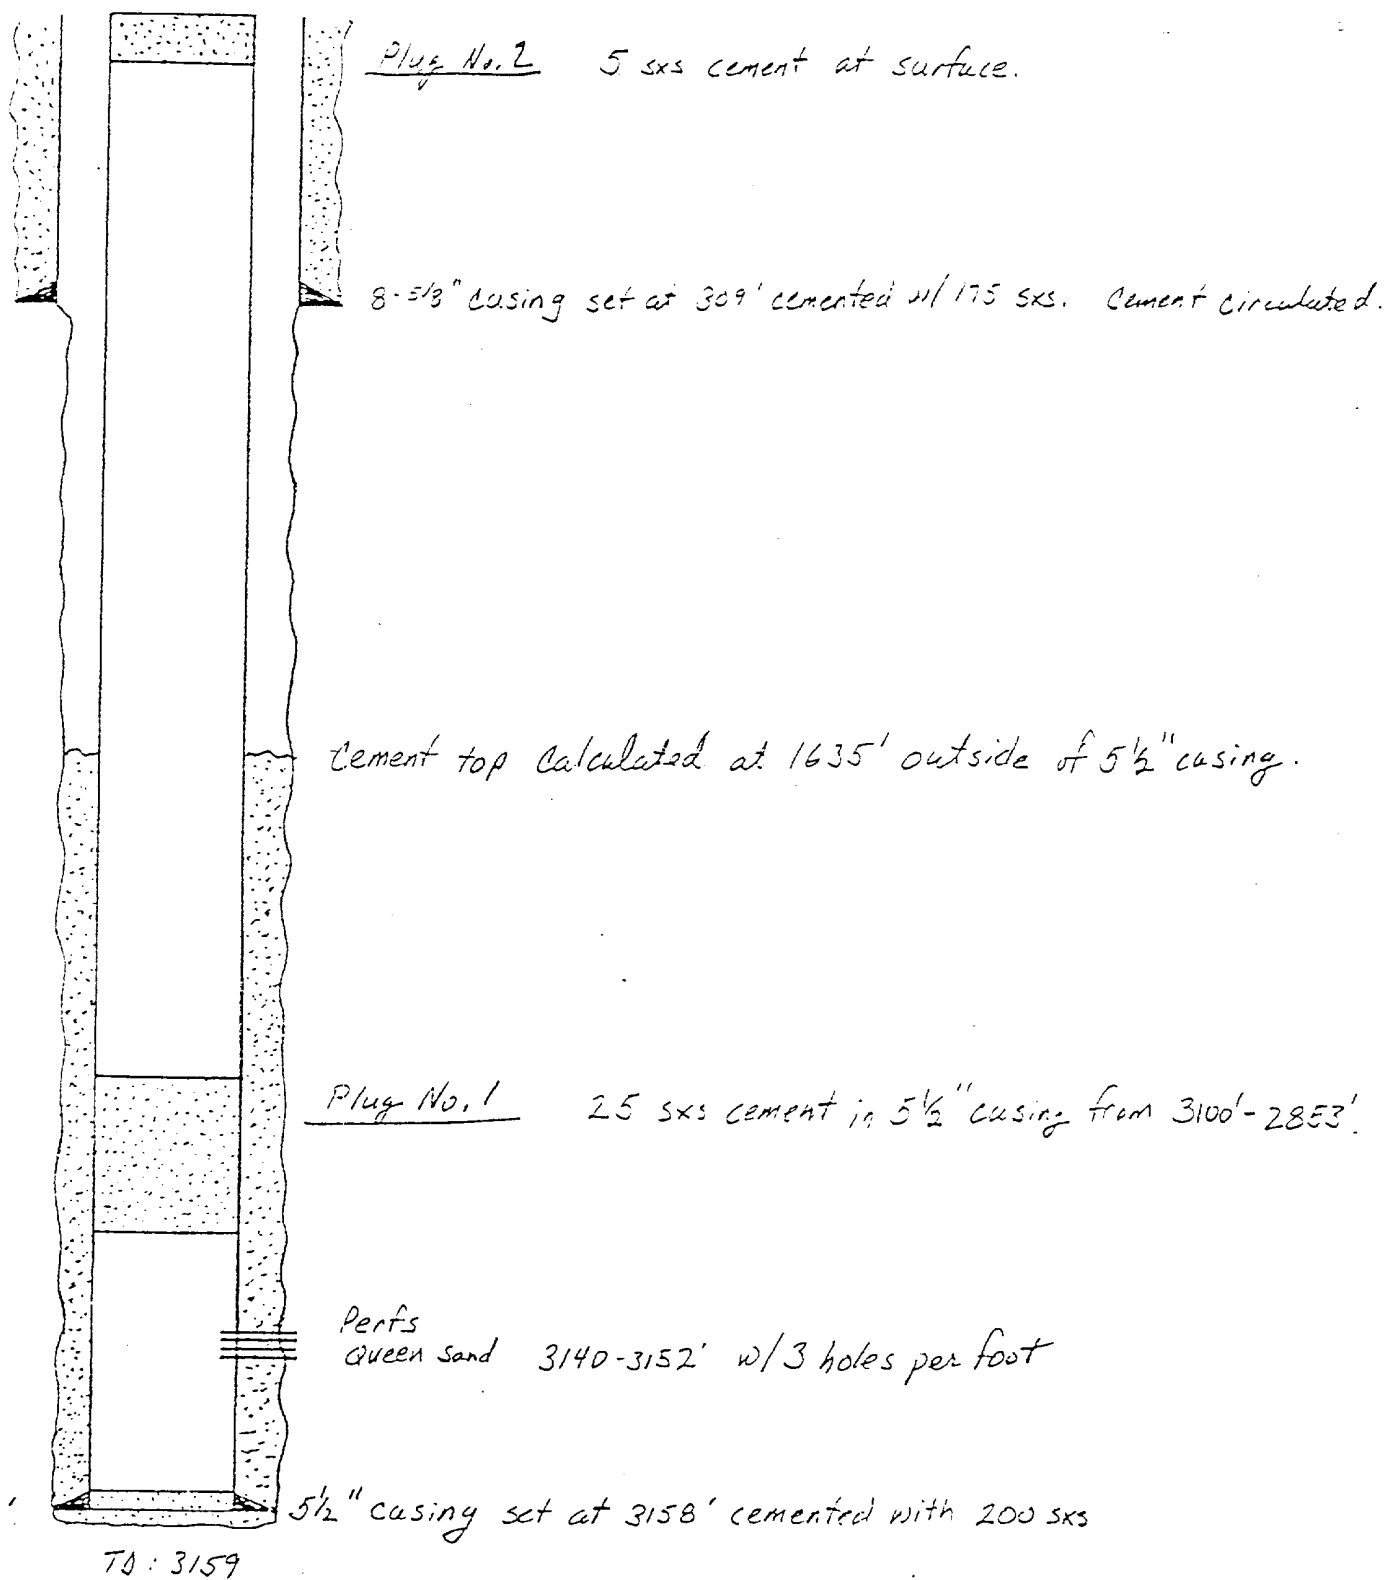 Plug No. 2 5 sxs cement at surface.
8-5/8" casing set at 309' cemented w/ 175 sxs. Cement circulated.
Cement top calculated at 1635' outside of 5½" casing.
Plug No. 1 25 sxs cement in 5½" casing from 3100'-2853'.
Perfs
Queen Sand 3140-3152' w/3 holes per foot
5½" casing set at 3158' cemented with 200 sxs
TD: 3159